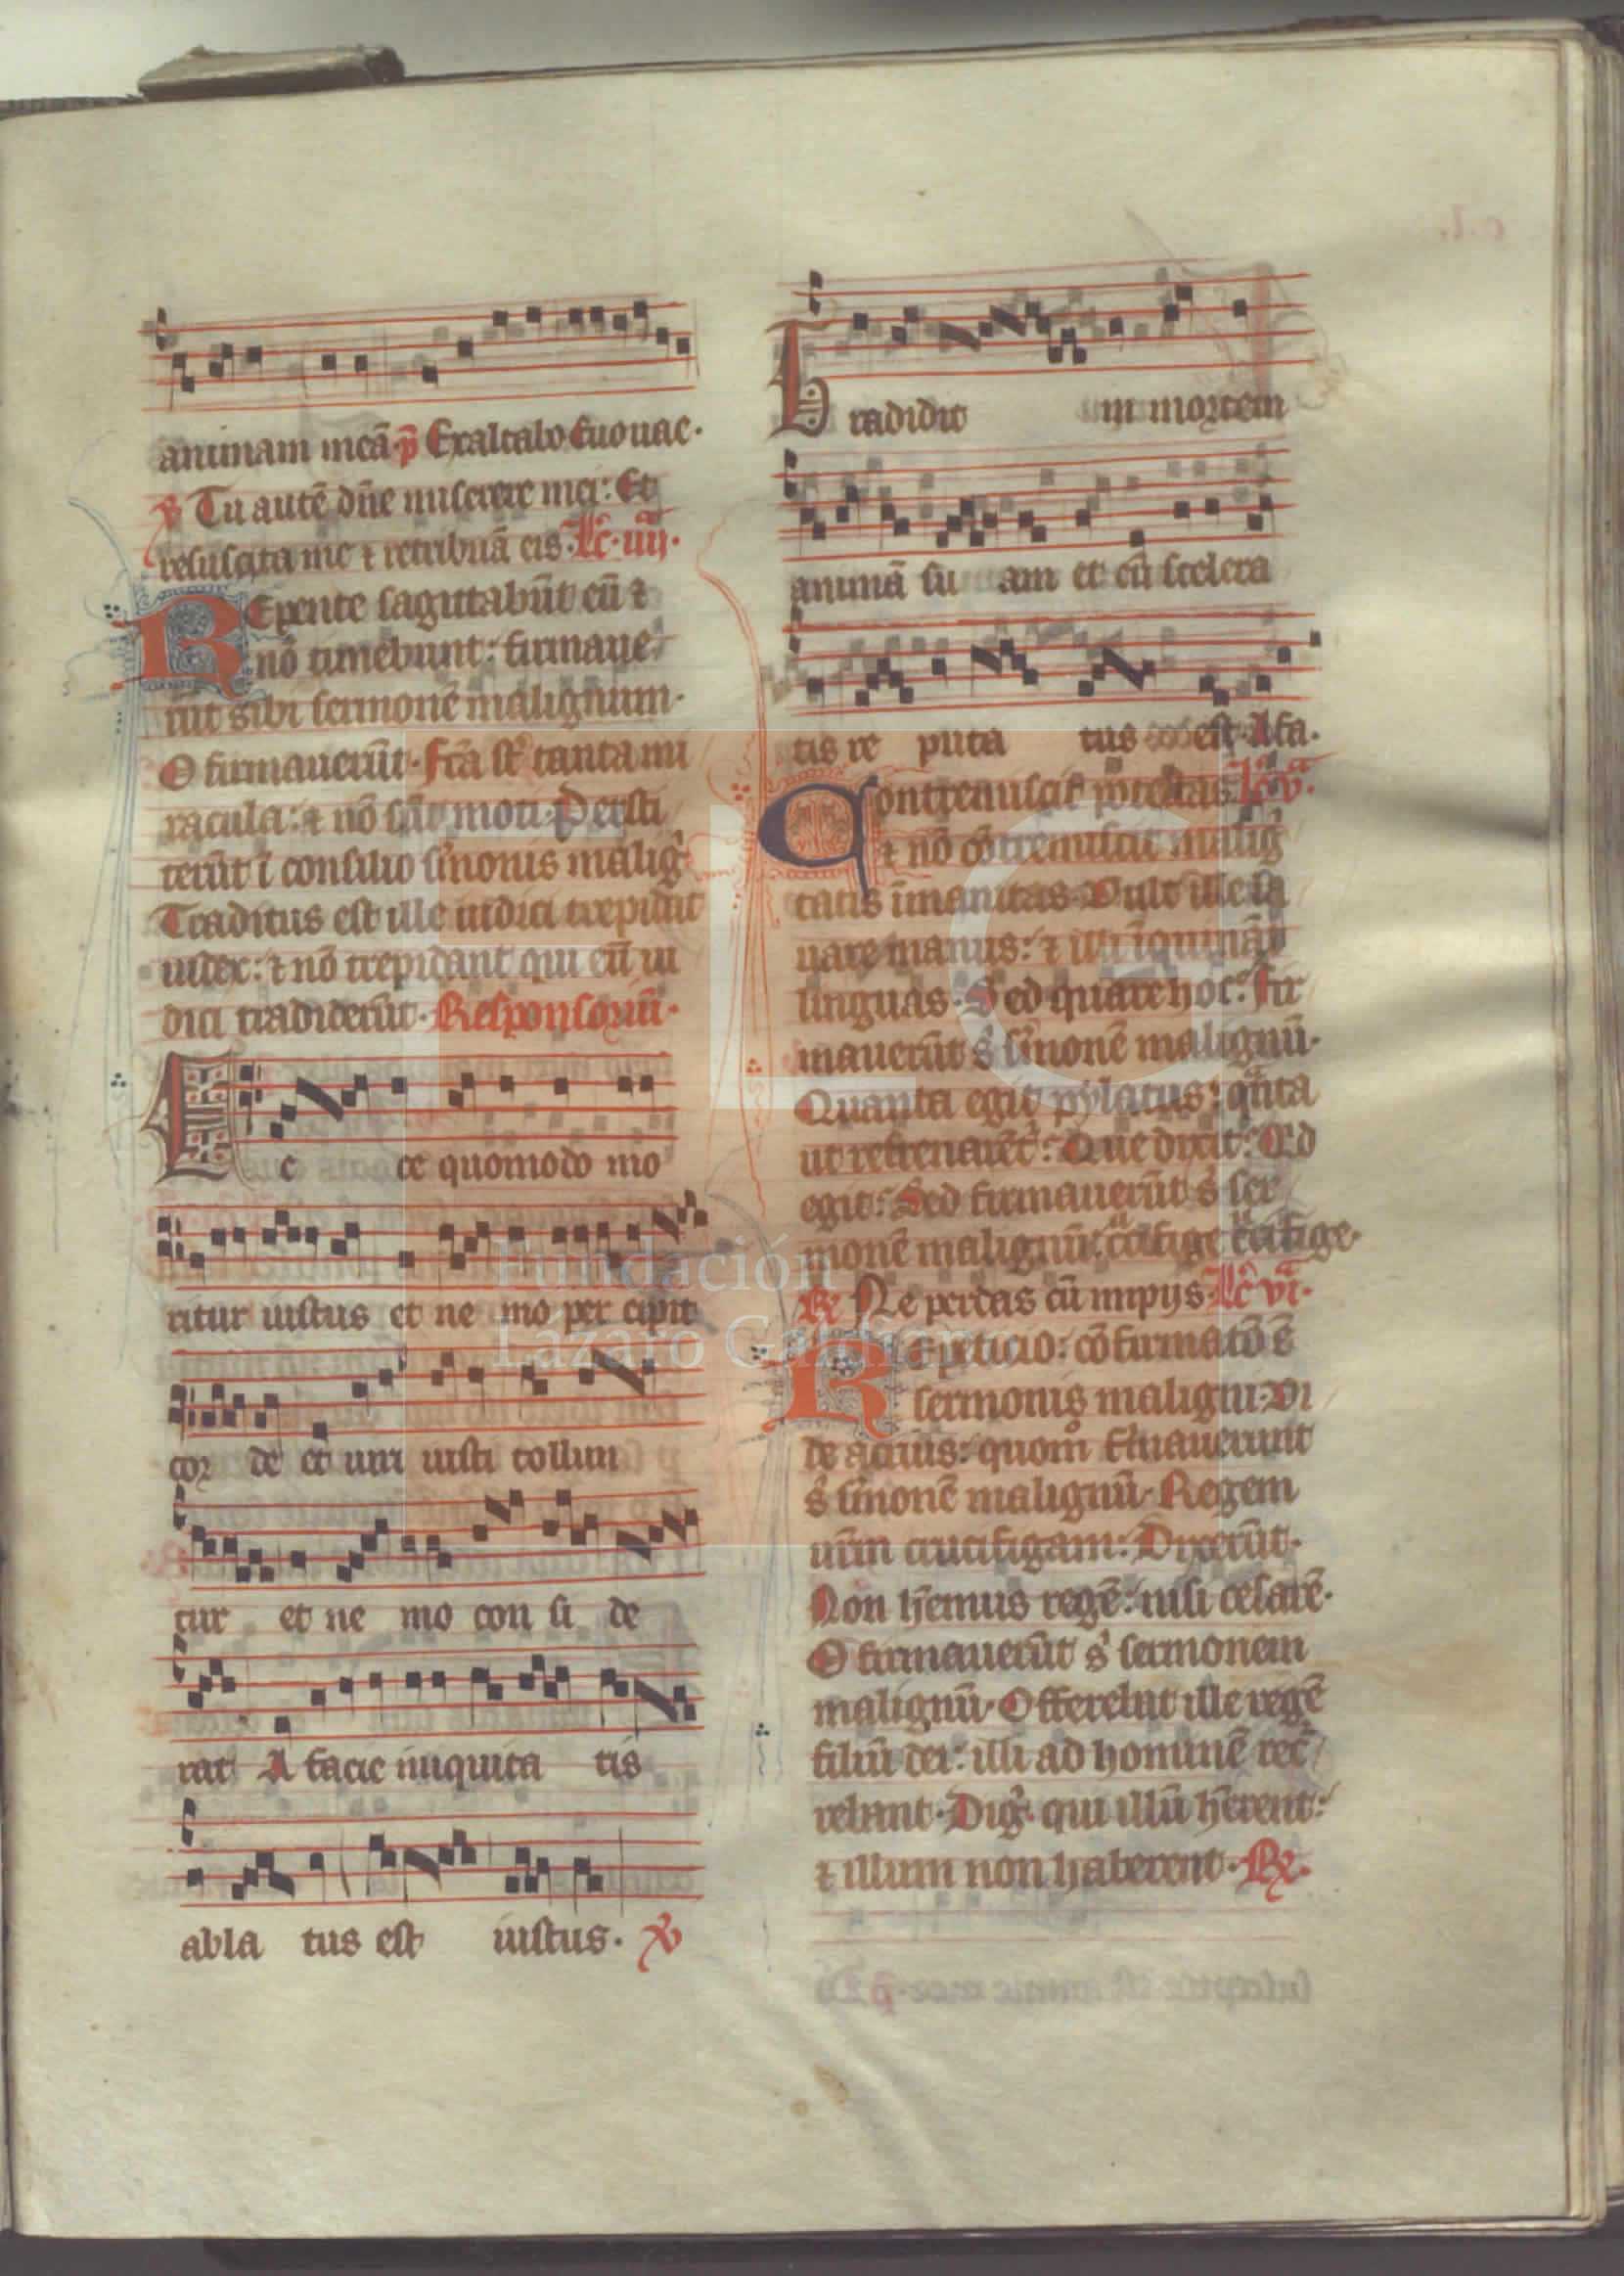 animam meā p̄ Exaltabo Euouae.
℣ Tu autē dn̄e miserere mei: Et
resuscita me ⁊ retribuā eis. Lc̄. iiij.
REpente sagittabūt eū ⁊
nō timebunt: firmaue
rūt sibi sermonē malignum.
O firmauerūt. Fc̄a st̄ tanta mi
racula: ⁊ nō sūt moti. Persti
terūt ī consilio sermonis malig
Traditus est ille iudici trepidat
iudex: ⁊ nō trepidant qui eū iu
dici tradiderūt. Responsoriū.
Ec ce quomodo mo
ritur iustus et ne mo per cipit
cor de et uiri iusti tollun
tur et ne mo con si de
rat A facie iniquita tis
abla tus est iustus. ℣
Tradidit in mortem
animā su am et cū scelera
tis re puta tus est. A fa.
Contremiscit potestas Lc̄ v.
⁊ nō cōtremiscit malig
tatis īmanitas. Vult ille la
uare manus: ⁊ illi
linguas. Sed quare hoc: Fir
mauerūt s̉ sermonē malignū.
Quanta egit pylatus: qn̄ta
ut refrenarēt: Que dixit: Qd
egit: Sed firmauerūt s̉ ser
monē malignū. crucifige crucifige.
℟ Ne perdas cū impijs. Lc̄ vi.
REpeticio: cōfirmatō ē
sermonis maligni. Vi
de acrius: quom̊ firmauerunt
s̉ sermonē malignū. Regem
ur̄m crucifigam: Dixerūt.
Non hēmus regē: nisi cesarē.
O firmauerūt s̉ sermonem
malignū. Offerebat ille regē
filiū dei: illi ad hominē rec
rebant. Dig. qui illū hērent:
⁊ illum non haberent. ℟.
Fundación
Lázaro Galdiano
FLG